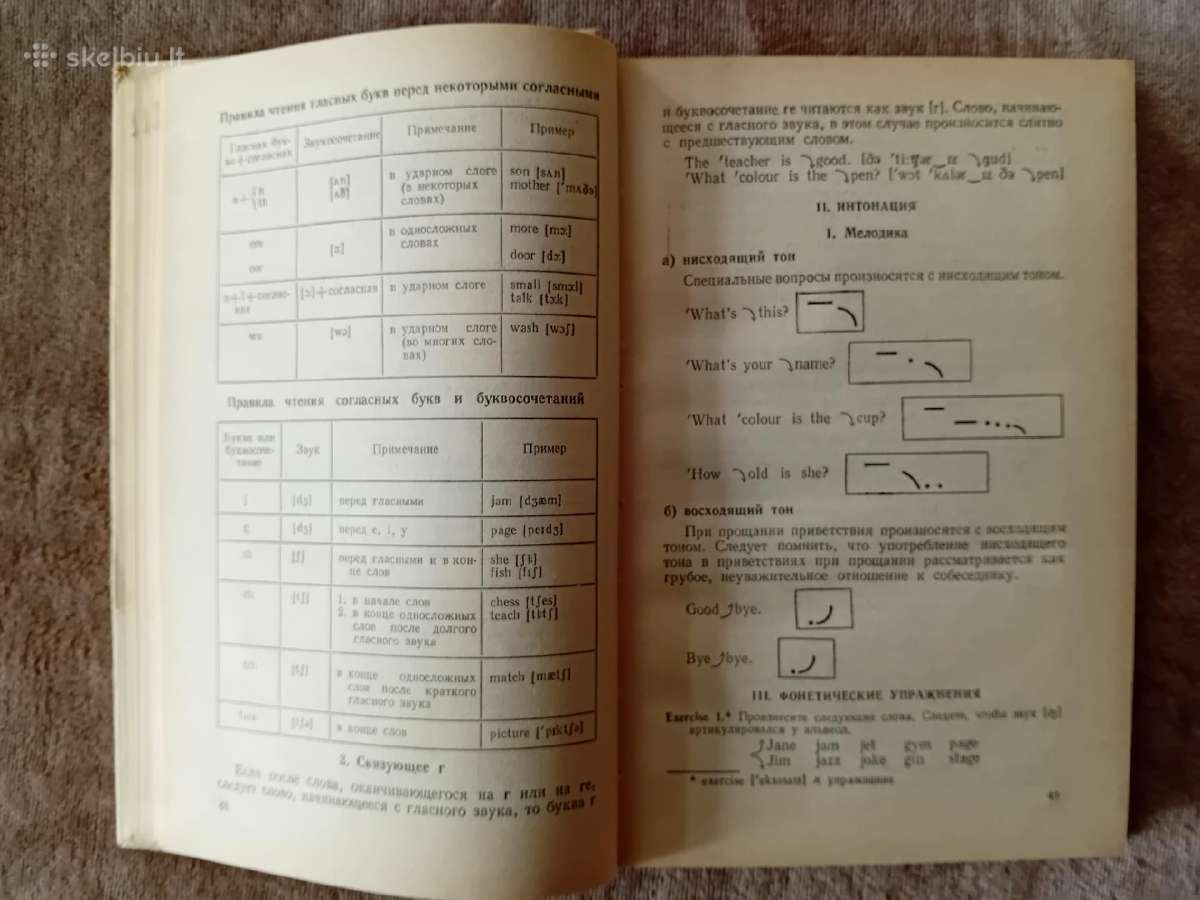 skelbiu.lt
Правила чтения гласных букв перед некоторыми согласными
Гласная бук-
ва+согласная
Звукосочетание
Примечание
Пример
[ʌn]
[ʌð]
в ударном слоге
(в некоторых
словах)
son [sʌn]
mother ['mʌðə]
[ɔ:]
в односложных
словах
more [mɔ:]
door [dɔ:]
a+l+соглас-
ная
[ɔ:]+согласная
в ударном слоге
small [smɔ:l]
talk [tɔ:k]
wa
[wɔ]
в ударном слоге
(во многих сло-
вах)
wash [wɔʃ]
Правила чтения согласных букв и буквосочетаний
Буква или
буквосоче-
тание
Звук
Примечание
Пример
j
[dʒ]
перед гласными
jam [dʒæm]
g
[dʒ]
перед e, i, y
page [peɪdʒ]
sh
[ʃ]
перед гласными и в кон-
це слов
she [ʃi:]
fish [fɪʃ]
ch
[tʃ]
1. в начале слов
2. в конце односложных
слов после долгого
гласного звука
chess [tʃes]
teach [ti:tʃ]
tch
[tʃ]
в конце односложных
слов после краткого
гласного звука
match [mætʃ]
ture
[tʃə]
в конце слов
picture ['pɪktʃə]
3. Связующее r
Если после слова, оканчивающегося на r или на re,
следует слово, начинающееся с гласного звука, то буква r
68
и буквосочетание re читаются как звук [r]. Слово, начинаю-
щееся с гласного звука, в этом случае произносится слитно
с предшествующим словом.
The 'teacher is ⤵good. [ðə 'ti:tʃər‿ɪz ⤵gud]
'What 'colour is the ⤵pen? ['wɔt 'kʌlər‿ɪz ðə ⤵pen]
II. ИНТОНАЦИЯ
1. Мелодика
а) нисходящий тон
Специальные вопросы произносятся с нисходящим тоном.
'What's ⤵this?
'What's your ⤵name?
'What 'colour is the ⤵cup?
'How ⤵old is she?
б) восходящий тон
При прощании приветствия произносятся с восходящим
тоном. Следует помнить, что употребление нисходящего
тона в приветствиях при прощании рассматривается как
грубое, неуважительное отношение к собеседнику.
Good⤴bye.
Bye⤴bye.
III. ФОНЕТИЧЕСКИЕ УПРАЖНЕНИЯ
Exercise 1.* Произнесите следующие слова. Следите, чтобы звук [dʒ]
артикулировался у альвеол.
⤴Jane jam jet gym page
⤵Jim jazz joke gin stage
* exercise ['eksəsaɪz] n упражнение
69